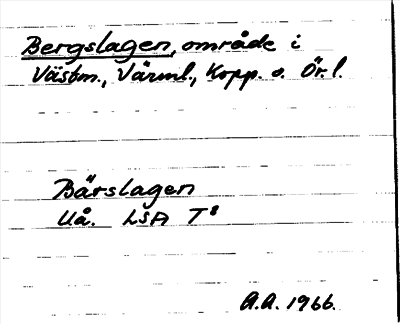 Bergslagen, område i
Västm., Värml., Kopp. o. Ör. l.
Bärslagen
Uå. LSA T⁸
A.A. 1966.